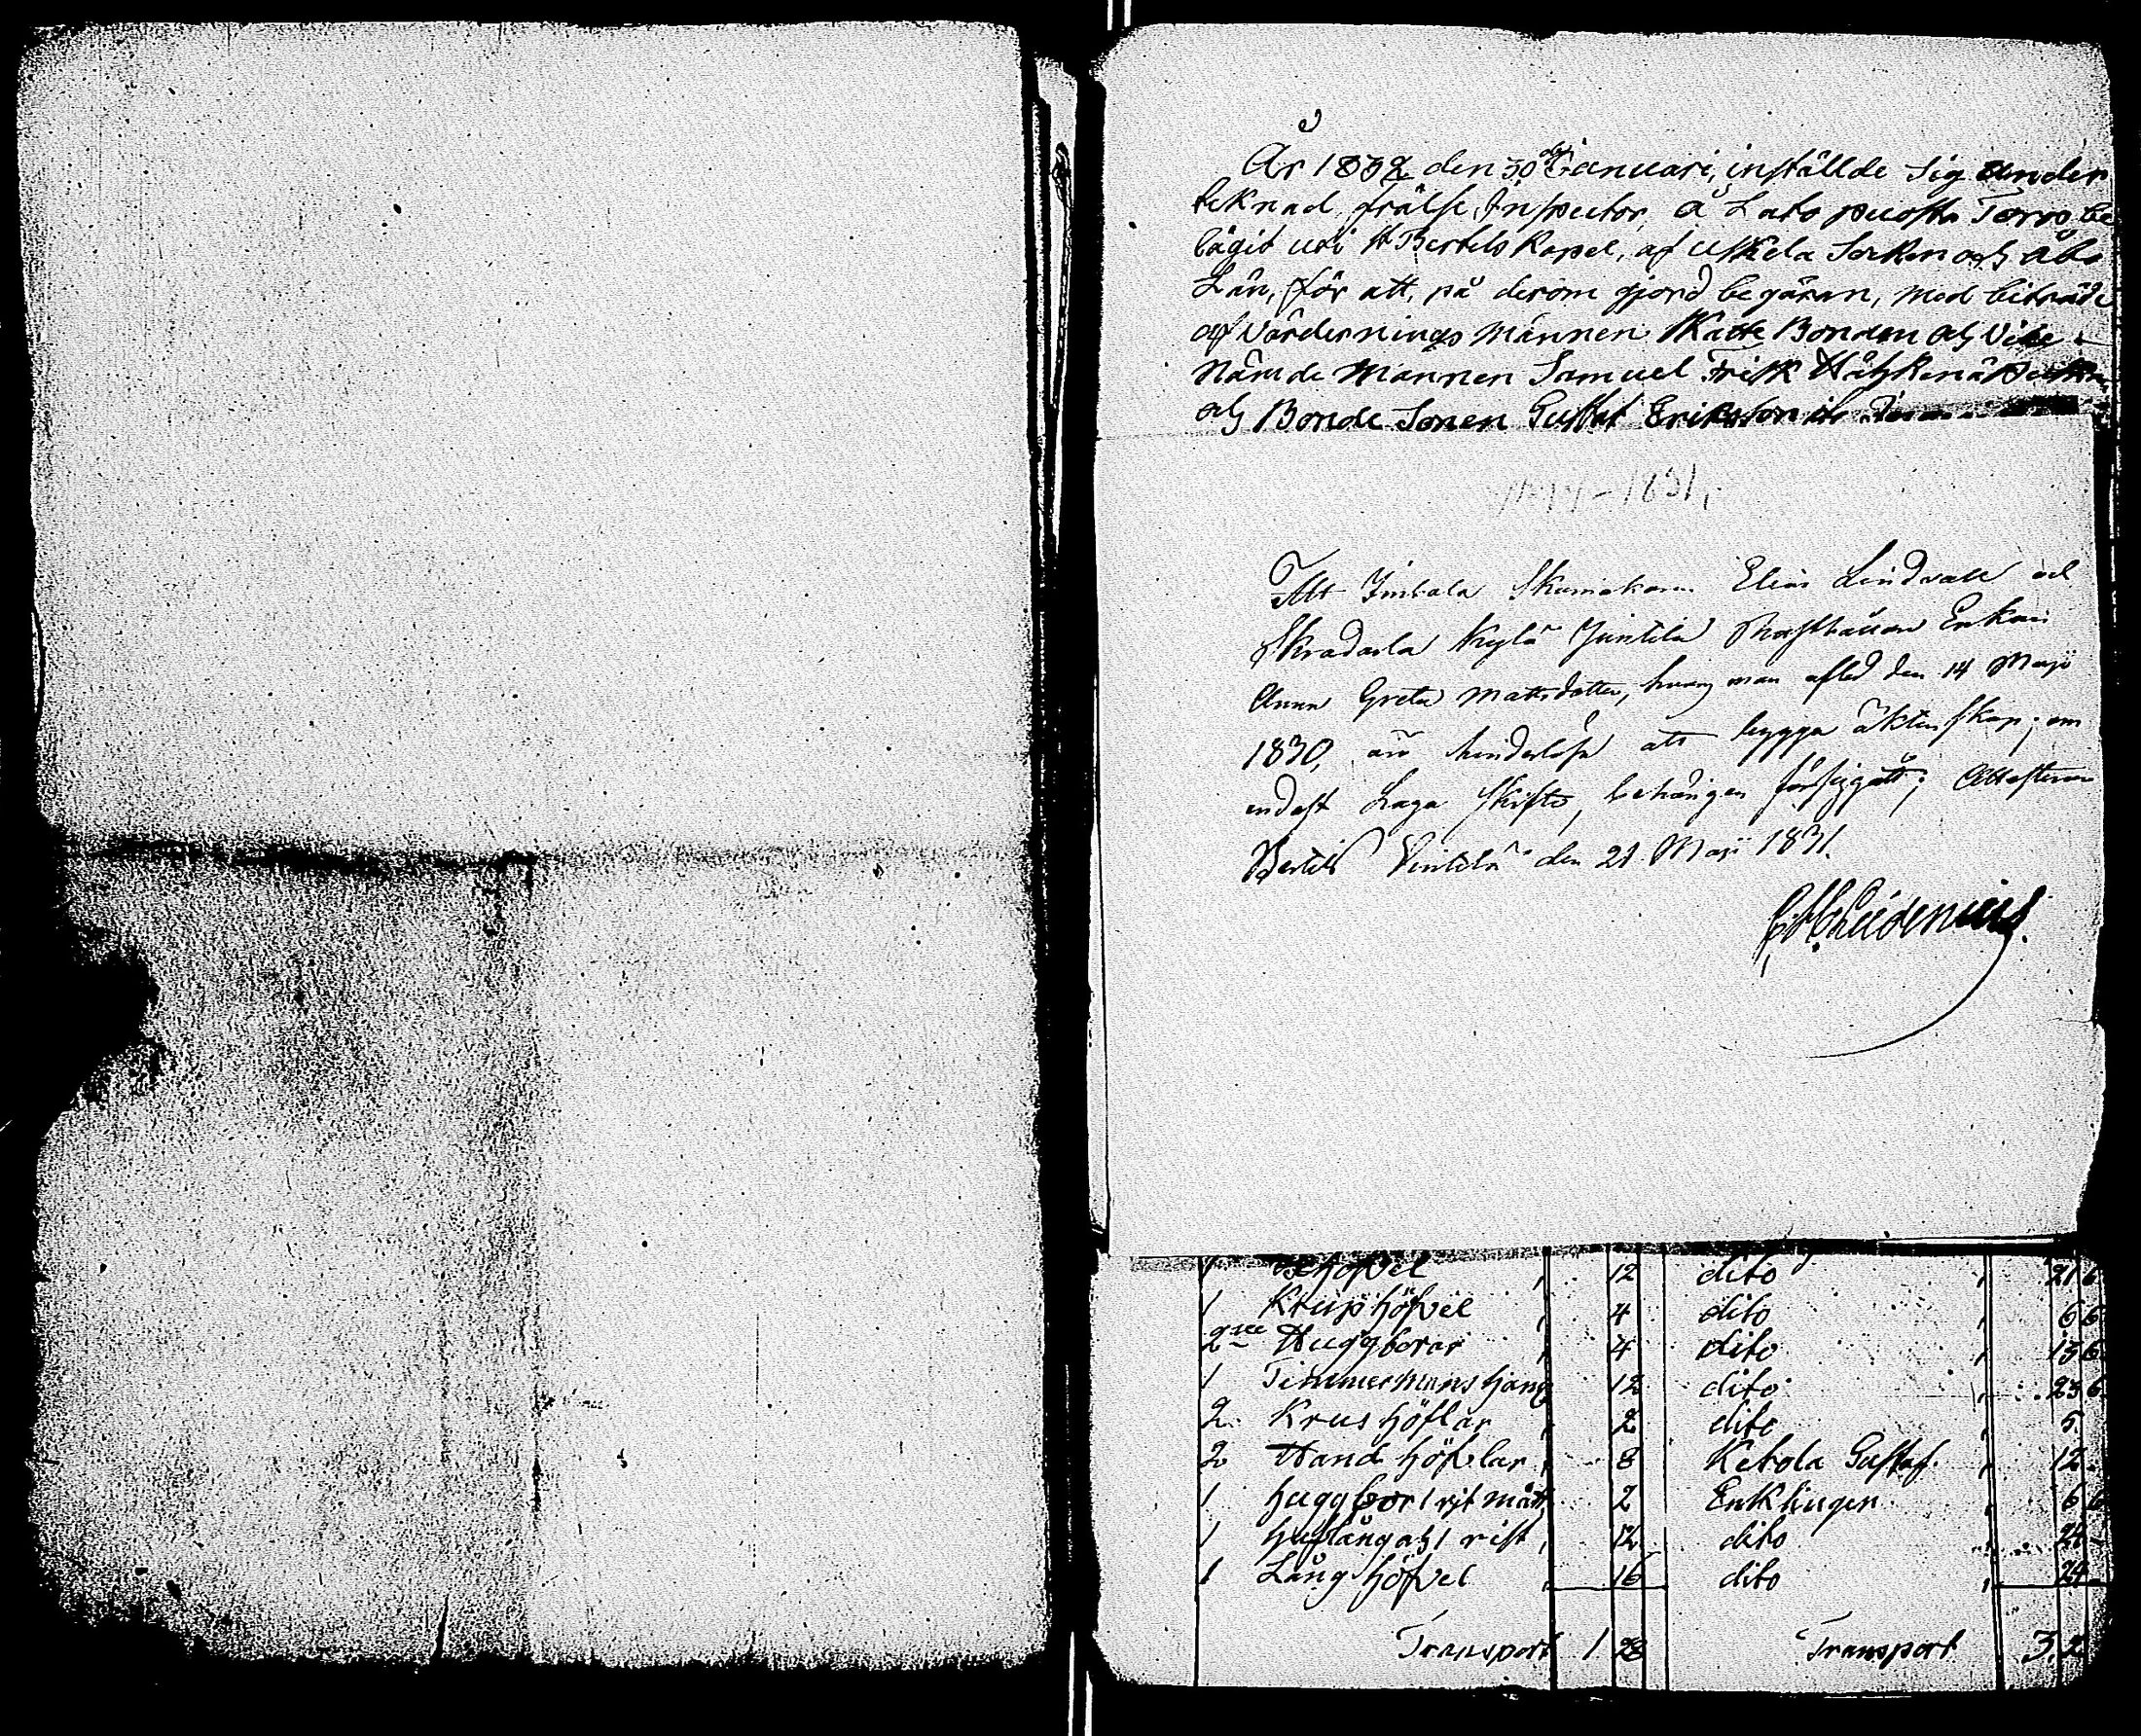 År 1832 den 30de Januari, inställde sig under
teknad frälse Inspector, å Lato puosta Torp be
lägit uti St Bertels Kapel, af Uskela Socken och Åbo
Län, för att, på derom gjord begäran, med biträde
af Värdernings Männen Skatte Bonden och Vice
Nämde Mannen Samuel Frisk
och Bonde Sonen Gustaf Eriksson
1831
Att Skomakaren Elias Lindvall och
Skradarla Kylä Juntila Enkan
Anna Greta Mattsdotter, hvars man afled den 14 Maji
1830, äro hinderlöse att bygga äktenskap; om
endast Laga Skifte, behörigen försiggått; Attesterar
Bertils Vintilä den 21 Maji 1831.
1 höfvel 12 dito 21 6
1 Krus höfvel 4 dito 6 6
2ne Huggborar 4 dito 15 6
1 Timmermans 12 dito 23 6
2 Krus höflar 2 dito 5
2 Hand höfvlar 8 Ketola Gustaf 12
1 huggbor 1 mått 2 Enklingen 6 6
1 och 1 rist 12 dito 24
1 Lång höfvel 16 dito 24
Transport 1 28 Transport 3 2